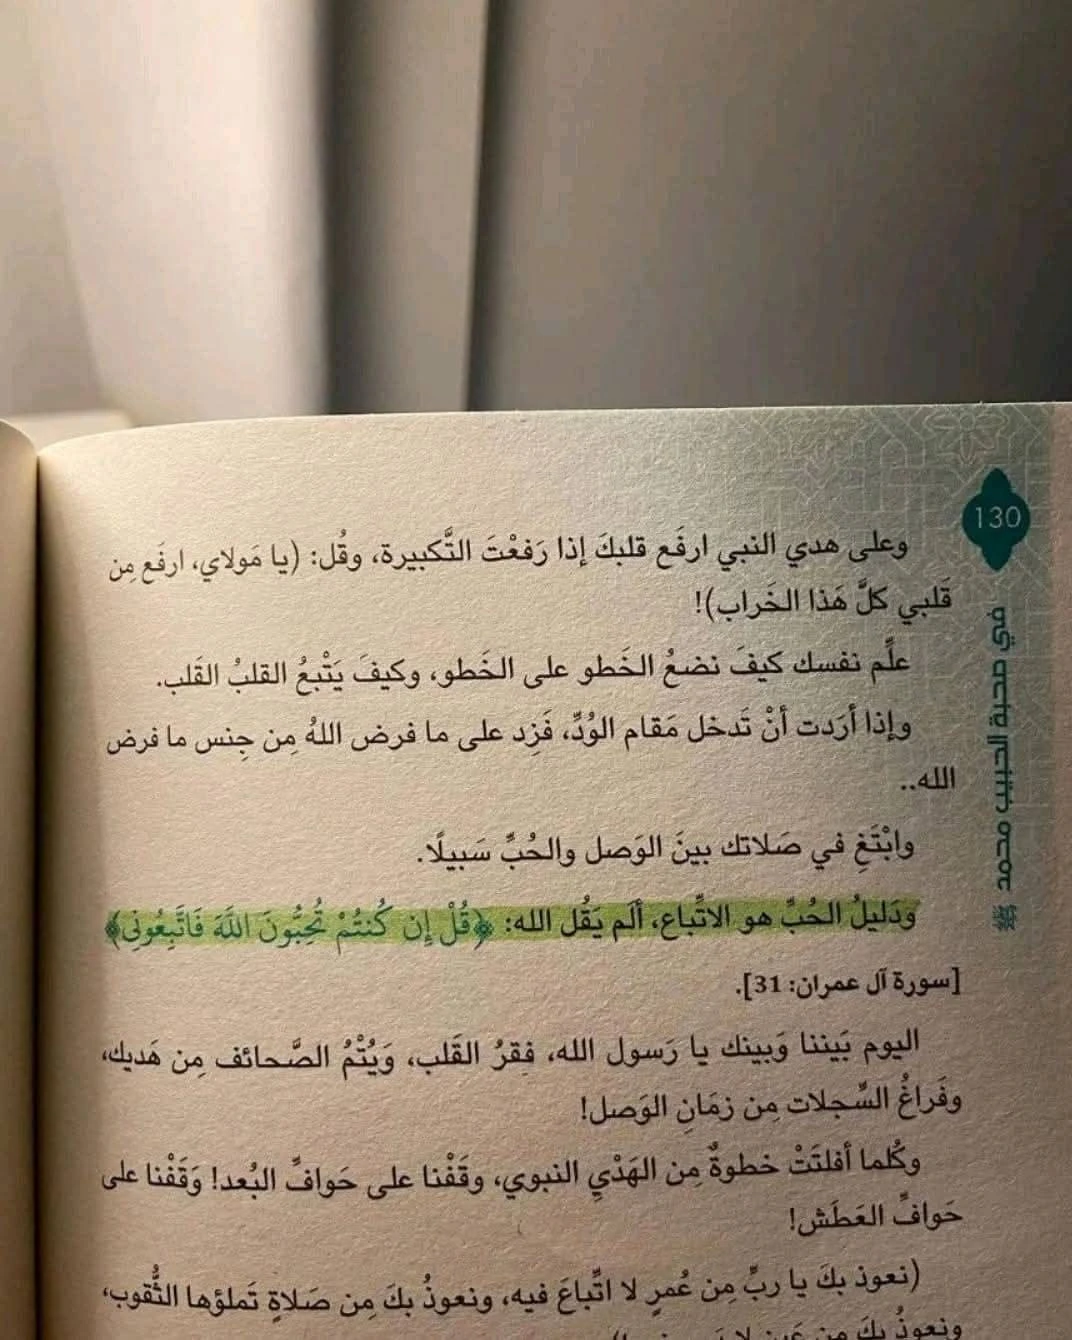 130
في صحبة الحبيب محمد ﷺ
وعلى هدي النبي ارفَع قلبكَ إذا رَفعْتَ التَّكبيرة، وقُل: (يا مَولاي، ارفَع مِن
قَلبي كلَّ هَذا الخَراب)!
علِّم نفسك كيفَ نضعُ الخَطو على الخَطو، وكيفَ يَتْبعُ القلبُ القَلب.
وإذا أرَدت أنْ تَدخل مَقام الوُدِّ، فَزِد على ما فرض اللهُ مِن جِنس ما فرض
الله..
وابْتَغِ في صَلاتك بينَ الوَصل والحُبِّ سَبيلًا.
ودَليلُ الحُبِّ هو الاتِّباع، ألَم يَقُل الله: ﴿قُلْ إِن كُنتُمْ تُحِبُّونَ اللَّهَ فَاتَّبِعُونِي﴾
[سورة آل عمران: 31].
اليوم بَيننا وَبينك يا رَسول الله، فِقرُ القَلب، وَيُتْمُ الصَّحائف مِن هَديك،
وفَراغُ السِّجلات مِن زمَانِ الوَصل!
وكُلما أفلتَتْ خطوةٌ مِن الهَدْيِ النبوي، وقَفْنا على حَوافِّ البُعد! وَقَفْنا على
حَوافِّ العَطَش!
(نعوذ بكَ يا ربِّ مِن عُمرٍ لا اتِّباعَ فيه، ونعوذُ بكَ مِن صَلاةٍ تَملؤها الثُّقوب،
ونعوذُ بكَ مِن عَينٍ لا